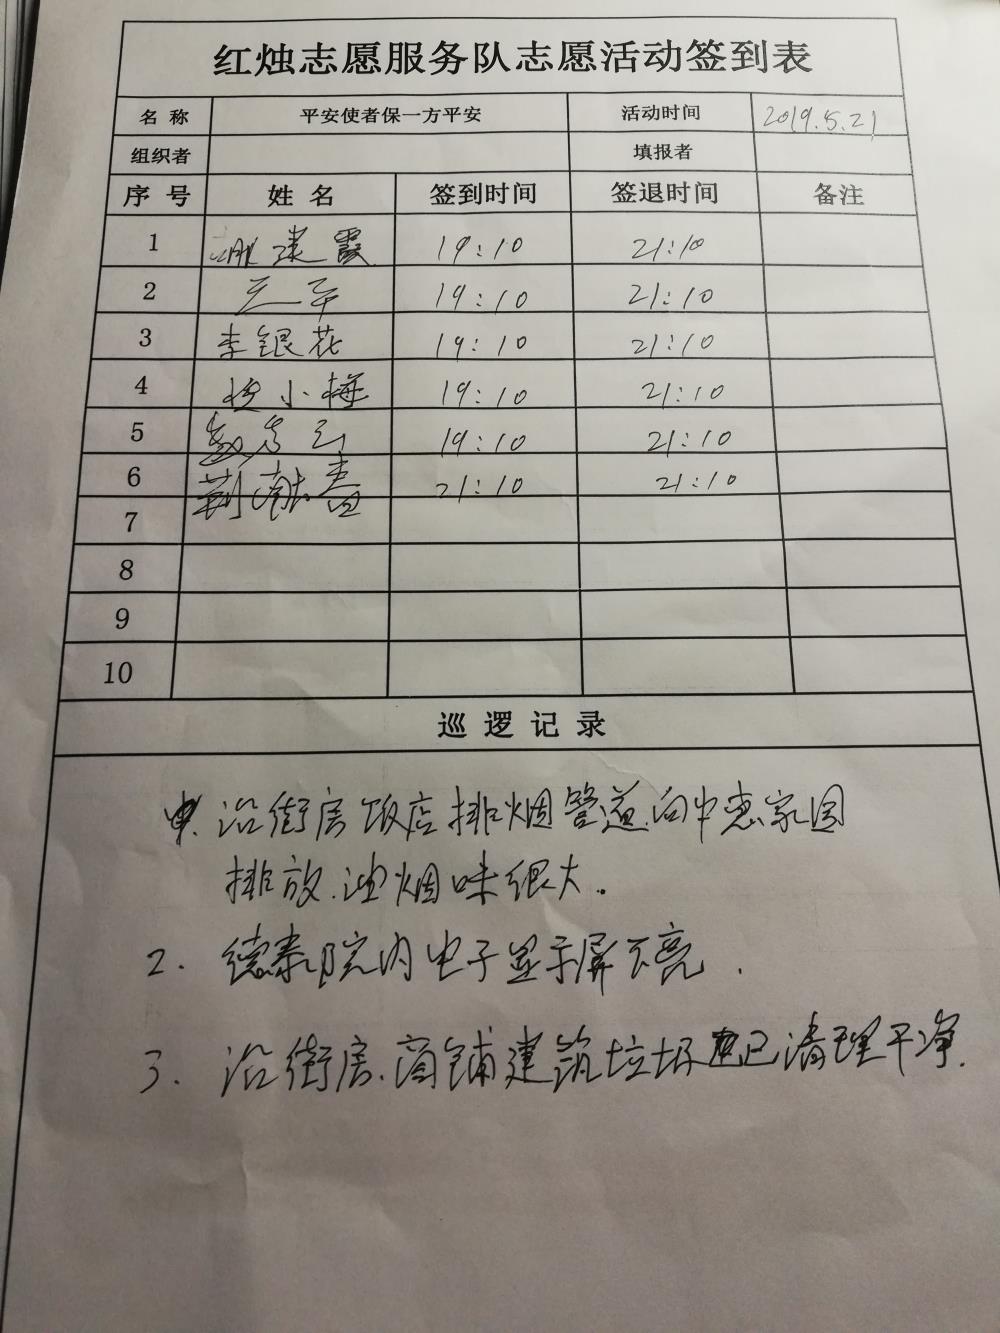 红烛志愿服务队志愿活动签到表
名 称 平安使者保一方平安 活动时间 2019.5.21
组织者 填报者
序 号 姓 名 签到时间 签退时间 备注
1 建霞 19:10 21:10
2 19:10 21:10
3 李银花 19:10 21:10
4 小梅 19:10 21:10
5 19:10 21:10
6 荆 21:10 21:10
7
8
9
10
巡 逻 记 录
沿街房饭店排烟管道向中惠家园
排放.油烟味很大.
2. 德泰院内电子显示屏不亮.
3. 沿街房.商铺建筑垃圾已清理干净.